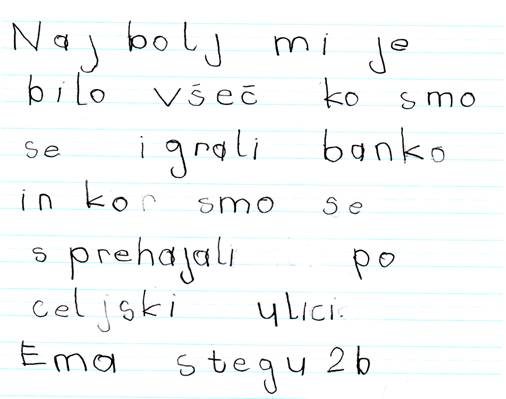 Naj bolj mi je
bilo všeč ko smo
se igrali banko
in ko smo se
sprehajali po
celjski ulici.
Ema stegu 2b